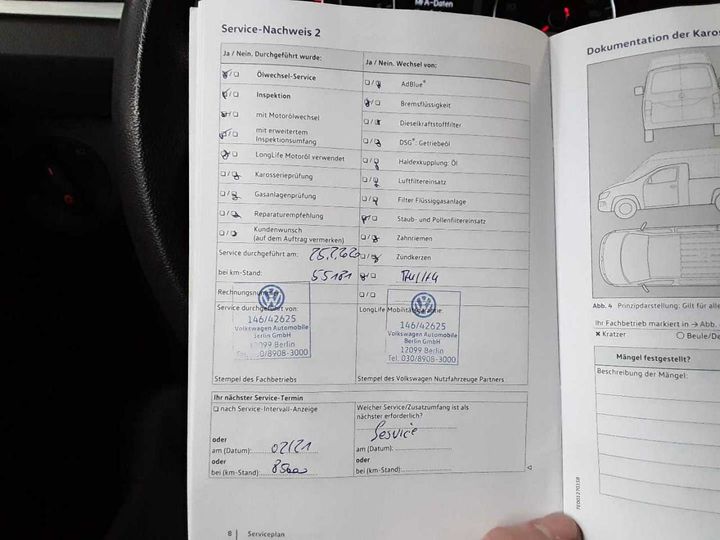 MFA-Daten
Service-Nachweis 2
Ja / Nein. Durchgeführt wurde:
Ölwechsel-Service
Inspektion
mit Motorölwechsel
mit erweitertem
Inspektionsumfang
LongLife Motoröl verwendet
Karosserieprüfung
Gasanlagenprüfung
Reparaturempfehlung
Kundenwunsch
(auf dem Auftrag vermerken)
Service durchgeführt am:
bei km-Stand: 55181
Rechnungsnummer
Service durchgeführt von:
146/42625
Volkswagen Automobile
Berlin GmbH
12099 Berlin
Tel. 030/8908-3000
Stempel des Fachbetriebs
Ja / Nein. Wechsel von:
AdBlue®
Bremsflüssigkeit
Dieselkraftstofffilter
DSG®: Getriebeöl
Haldexkupplung: Öl
Luftfiltereinsatz
Filter Flüssiggasanlage
Staub- und Pollenfiltereinsatz
Zahnriemen
Zündkerzen
LongLife Mobilitätsgarantie:
146/42625
Volkswagen Automobile
Berlin GmbH
12099 Berlin
Tel. 030/8908-3000
Stempel des Volkswagen Nutzfahrzeuge Partners
Ihr nächster Service-Termin
nach Service-Intervall-Anzeige
oder
am (Datum): 02/21
oder
bei (km-Stand): 85000
Welcher Service/Zusatzumfang ist als
nächster erforderlich?
Service
am (Datum):
oder
bei (km-Stand):
8 Serviceplan
Dokumentation der Karos
Abb. 4 Prinzipdarstellung: Gilt für alle
Ihr Fachbetrieb markiert in → Abb.
Kratzer
Beule/De
Mängel festgestellt?
Beschreibung der Mängel: